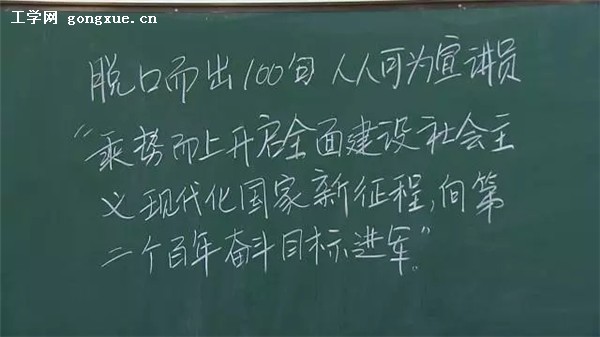 工学网 gongxue.cn
脱口而出100句 人人可为宣讲员
“乘势而上开启全面建设社会主
义现代化国家新征程,向第
二个百年奋斗目标进军”。